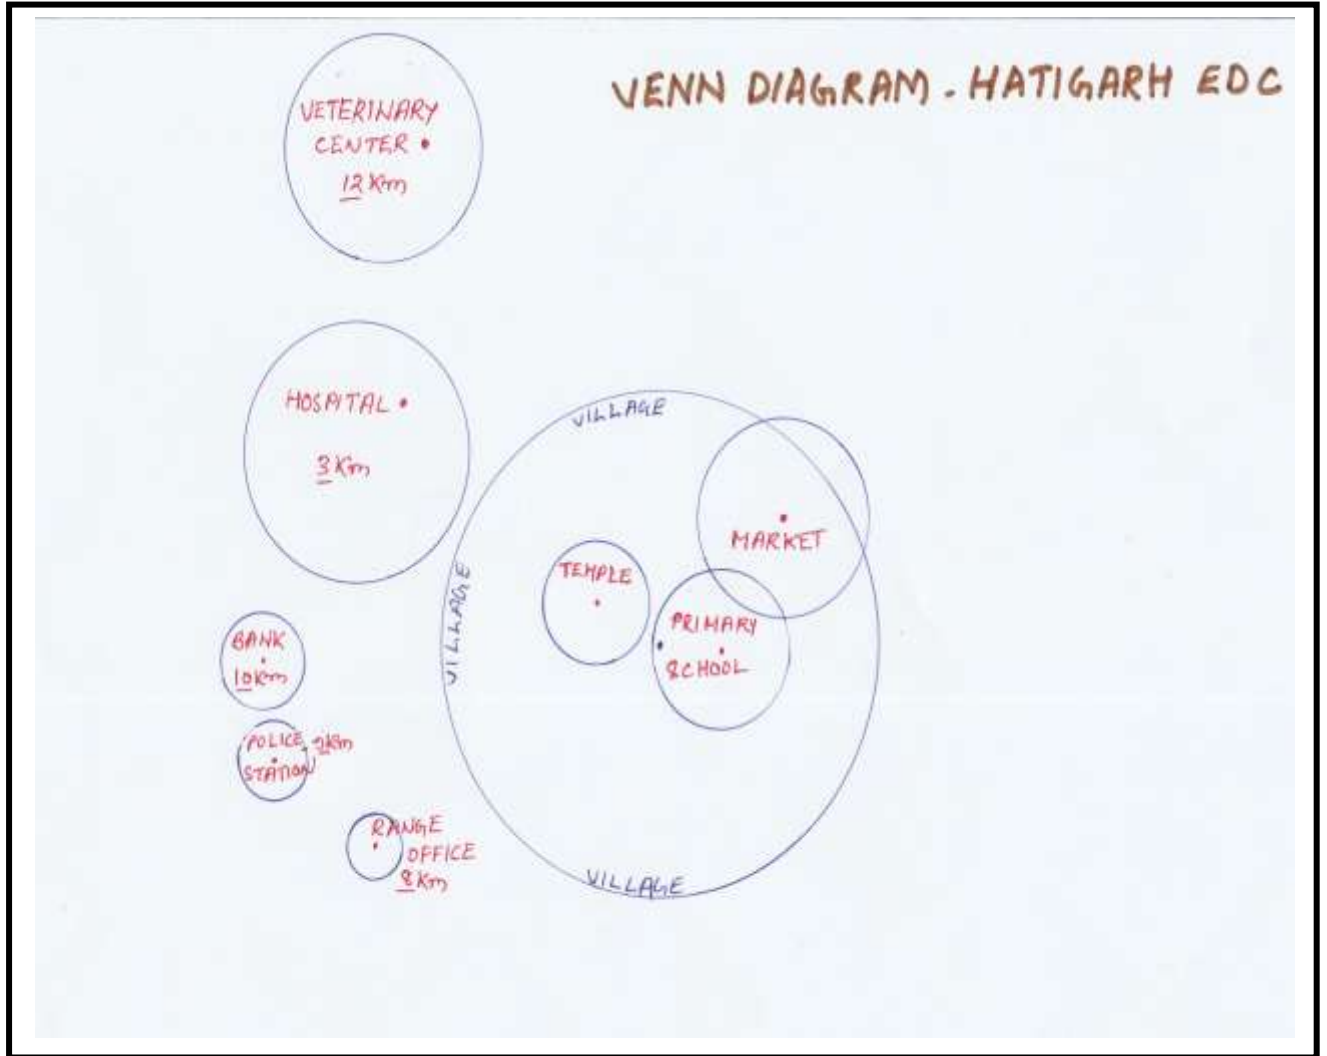 VENN DIAGRAM. HATIGARH EDC
VETERINARY
CENTER
12 Km
HOSPITAL
3 Km
VILLAGE
MARKET
TEMPLE
VILLAGE
PRIMARY
SCHOOL
BANK
10Km
POLICE
STATION
RANGE
OFFICE
8 Km
VILLAGE